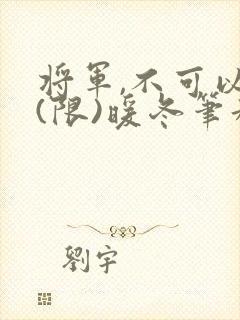 將軍,不可以
(限)暖冬筆
劉宇